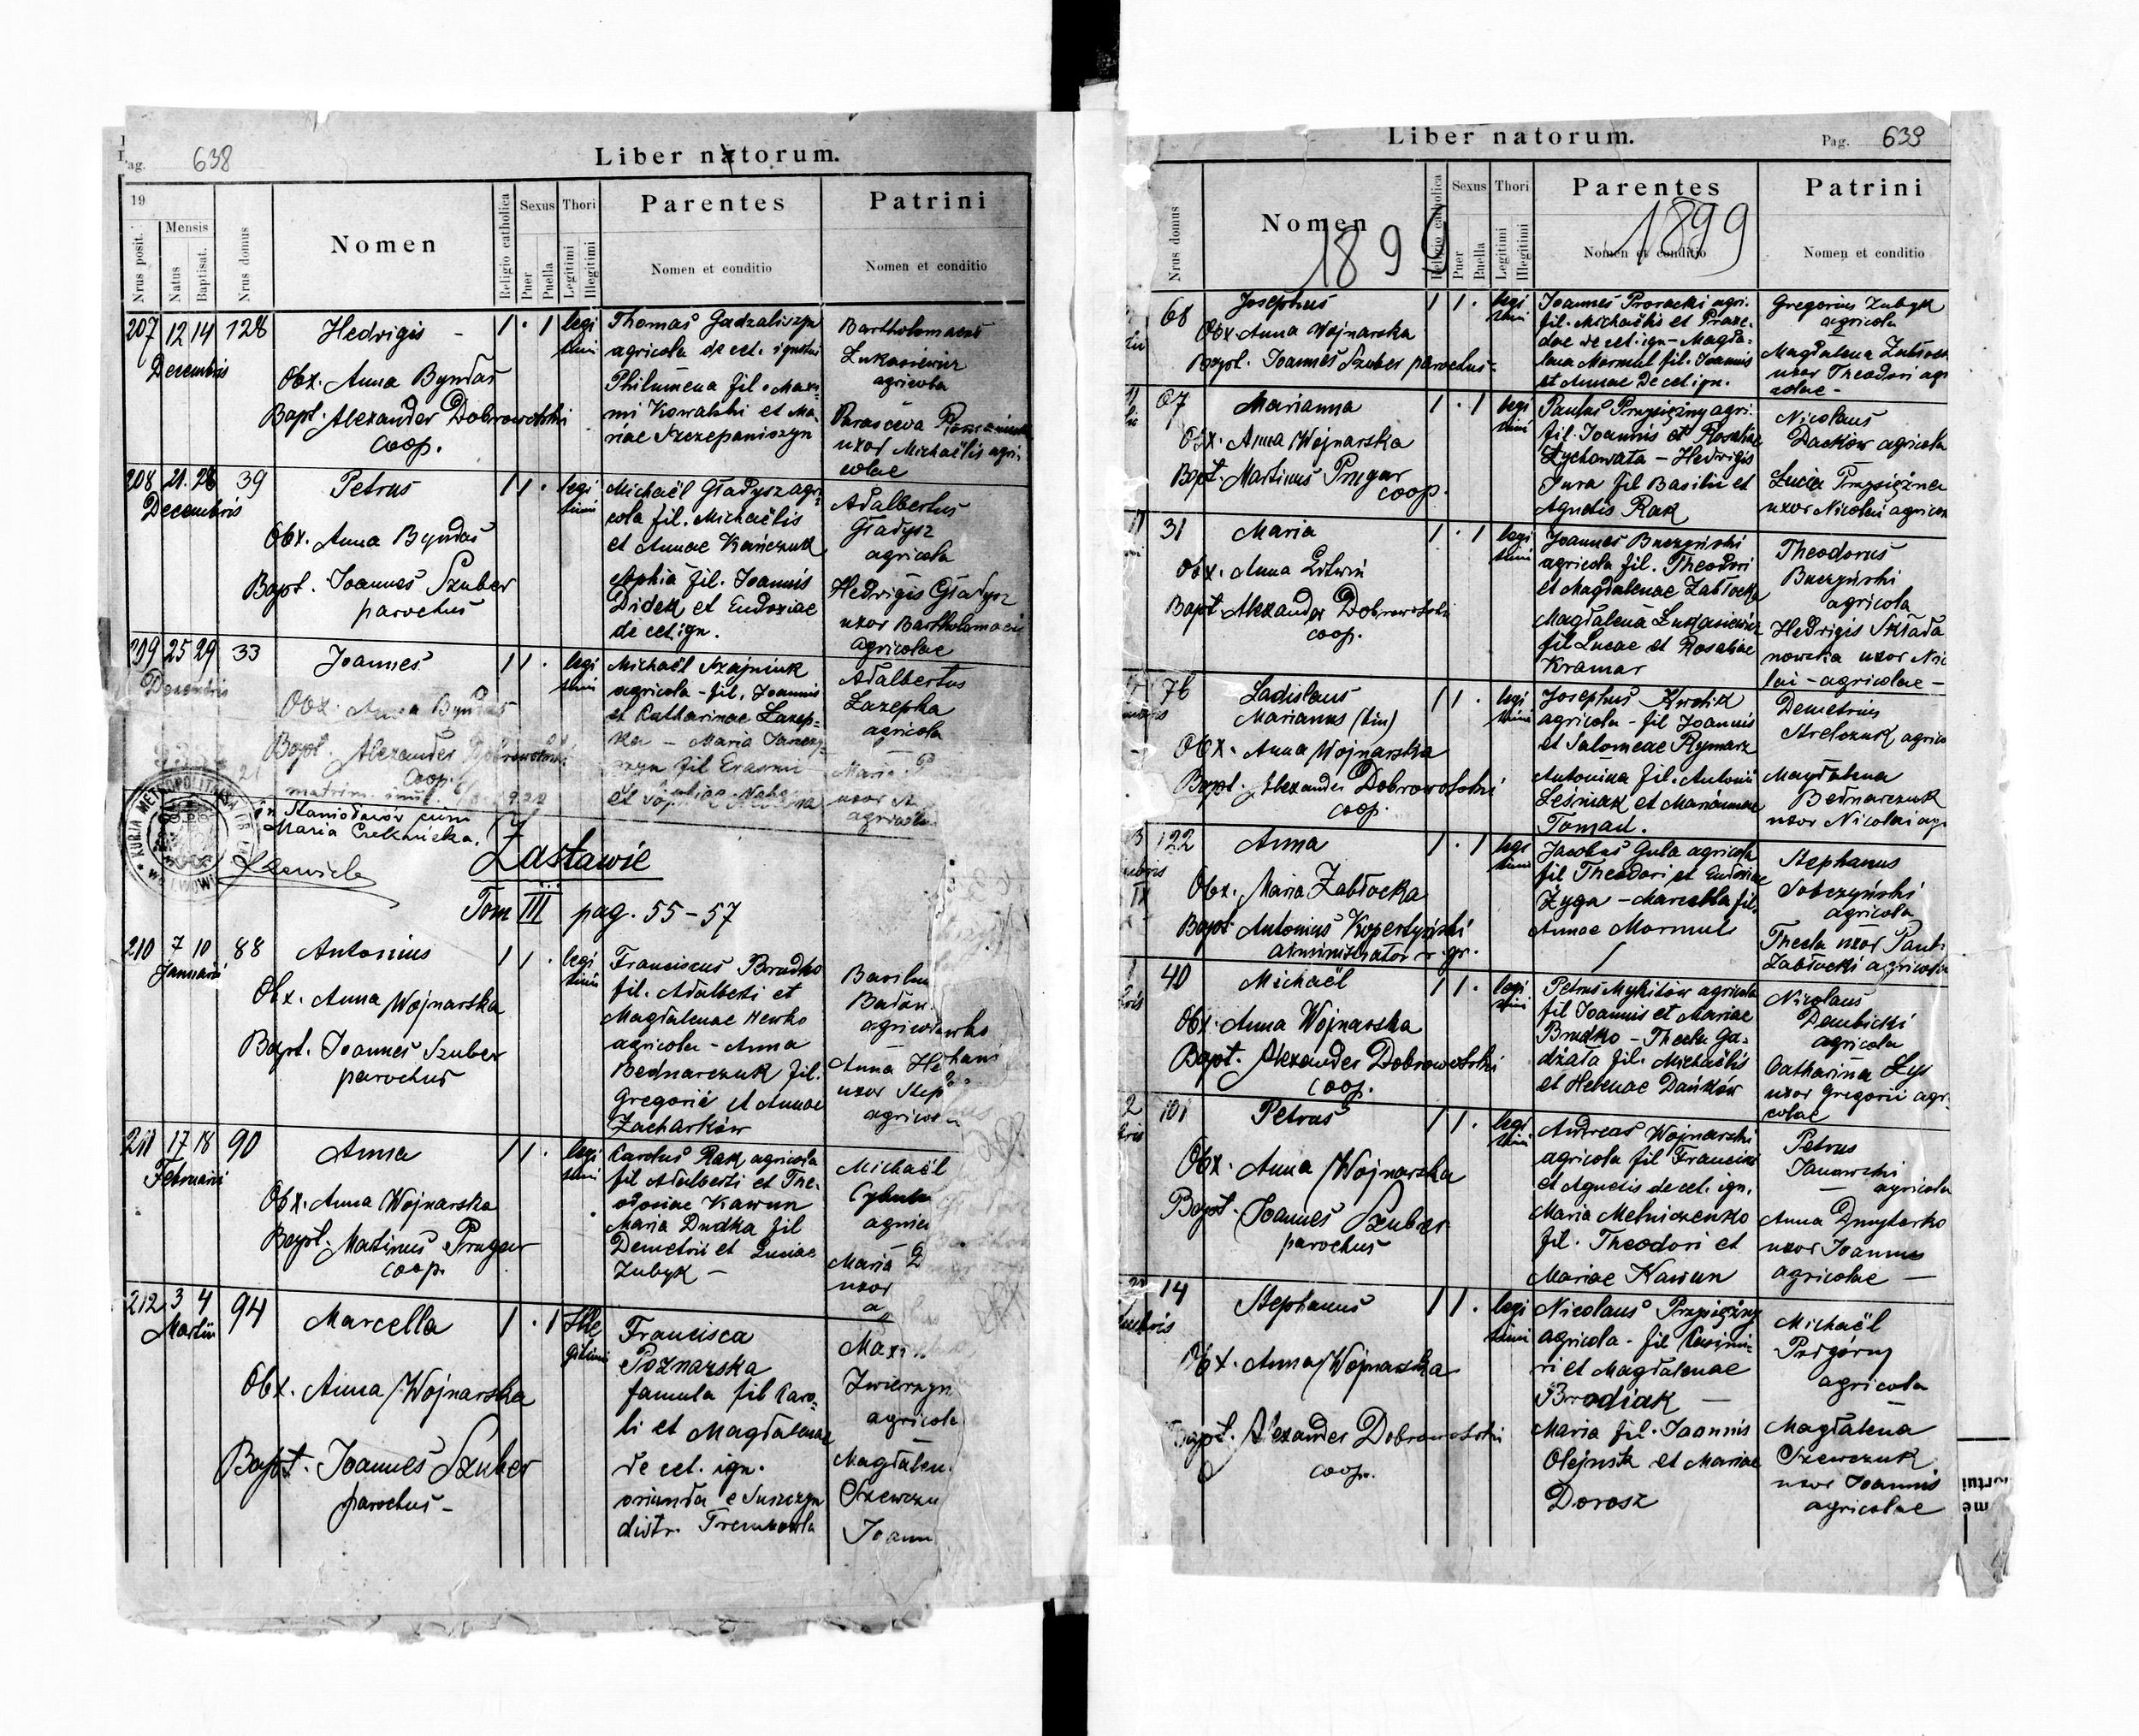 Pag. 638
Liber natorum.
19
Nrus posit.
Mensis
Natus
Baptisat.
Nrus domus
Nomen
Religio catholica
Sexus
Puer
Puella
Thori
Legitimi
Illegitimi
Parentes
Nomen et conditio
Patrini
Nomen et conditio
207 12 14 128 Hedvigis - 1 · 1 legi
timi
Decembris
Obx. Anna Byndas
Bapt. Alexander Dobrowolski
coop.
Thomas
agricola de cet. ignotus
Philumena fil. Maxi-
mi Kowalski et Ma-
riae Szczepaniszyn
Bartholomaeus
Lukasiewicz
agricola
Parasceva
uxor Michaëlis agri-
colae
208 21. 26 39 Petrus 1 1 · legi
timi
Decembris
Obx. Anna Byndas
Bapt. Joannes Szuber
parochus
Michaël Gładysz agri-
cola fil. Michaëlis
et Annae Kańczuk
Sophia fil. Joannis
Didek et Eudoxiae
de cet. ign.
Adalbertus
Gładysz
agricola
Hedvigis Gładysz
uxor Bartholomaei
agricolae
209 25 29 33 Joannes 1 1 · legi
timi
Decembris
Obx. Anna Byndas
Bapt. Alexander Dobrowolski
coop.
matrim. iniit
in Stanisławów cum
Maria
Michaël Szajniuk
agricola - fil. Joannis
et Catharinae Łazep-
ka - Maria
fil Erasmi
et
Adalbertus
Łazepka
agricola
Maria P
uxor
agricolae
KURJA METROPOLITALNA
WE LWOWIE
Zastawie
Tom III pag. 55-57
210 7 10 88 Antonius 1 1 · legi
timi
Januarii
Obx. Anna Wojnarska
Bapt. Joannes Szuber
parochus
Franciscus Brudko
fil. Adalberti et
Magdalenae Hewko
agricola - Anna
Bednarczuk fil.
Gregorii et Annae
Zacharków
Basilius
agricola
Anna
uxor Step
211 17 18 90 Anna 1 1 · legi
timi
Februarii
Obx. Anna Wojnarska
Bapt. Martinus Prugar
coop.
Carolus Rak agricola
fil Adalberti et The-
odosiae Kawun
Maria Dudka fil
Demetrii et Luciae
Zubyk -
Michaël
agric
Maria
uxor
a
212 3 4 94 Marcella 1 · 1 Ille
gitimi
Martii
Obx. Anna Wojnarska
Bapt. Joannes Szuber
parochus -
Francisca
Poznarska
famula fil Caro-
li et Magdalenae
de cet. ign.
oriunda e Suszczyn
distr. Trembowla
Max
Zwierzyn
agricola
Magdalen
Szewczu
Joann
Liber natorum.
Pag. 639
Nrus domus
Nomen
1899
Religio catholica
Sexus
Puer
Puella
Thori
Legitimi
Illegitimi
Parentes
1899
Nomen et conditio
Patrini
Nomen et conditio
68 Josephus 1 1 · legi
timi
Obx Anna Wojnarska
Bapt. Joannes Szuber parochus -
Joannes Proracki agri.
fil. Michaëlis et Praxe-
dae de cet. ign - Magda-
lena Marmul fil. Joannis
et Annae de cet ign.
Gregorius Zubyk
agricola
Magdalena
uxor Theodori agri
colae -
07 Marianna 1 · 1 legi
timi
Obx. Anna Wojnarska
Bapt. Martinus Prugar
coop.
Paulus Przysiężny agri.
fil. Joannis et Rosaliae
Łychowata - Hedvigis
Jura fil Basilii et
Agnetis Rak
Nicolaus
Dańków agricola
Lucia Przysiężna
uxor Nicolai agricol
31 Maria 1 · 1 legi
timi
Obx. Anna Litwin
Bapt. Alexander Dobrowolski
coop.
Joannes Buczyński
agricola fil. Theodori
et Magdalenae Zabłocka
Magdalena Łukasiewicz
fil Lucae et Rosaliae
Kramar
Theodorus
Buczyński
agricola
Hedvigis Składa
nowska uxor Nic
lai - agricolae -
76 Ladislaus
Marianus (bin) 1 1 · legi
timi
Obx. Anna Wojnarska
Bapt. Alexander Dobrowolski
coop.
Josephus Kwolik
agricola - fil Joannis
et Salomeae Rymarz
Antonina fil. Antonii
Leśniak et Mariannae
Tomań.
Demetrius
Strelczuk agrico
Magdalena
Bednarczuk
uxor Nicolai agr
122 Anna 1 · 1 legi
timi
Obx. Maria Zabłocka
Bapt Antonius Kopertyński
administrator r. gr.
Jacobus Gula agricola
fil Theodori et Eudoxiae
Żyga - Marcella fil.
Annae Marmul
Stephanus
Sobczyński
agricola
Thecla uxor Pauli
Zabłocki agricolae
40 Michaël 1 1 · legi
timi
Obx. Anna Wojnarska
Bapt. Alexander Dobrowolski
coop.
Petrus Mykitów agricola
fil Joannis et Mariae
Brudko - Thecla Ga-
dżała fil. Michaëlis
et Helenae Dańków
Nicolaus
Dembicki
agricola
Catharina Łys
uxor Gregorii agri-
colae
101 Petrus 1 1 · legi
timi
Obx. Anna Wojnarska
Bapt. Joannes Szuber
parochus
Andreas Wojnarski
agricola fil Francisci
et Agnetis de cet. ign.
Maria Melniczenko
fil. Theodori et
Mariae Kawun
Petrus
Janowski
agricola
Anna Dmyterko
uxor Joannis
agricolae -
14 Stephanus 1 1 · legi
timi
Obx. Anna Wojnarska
Bapt. Alexander Dobrowolski
coop.
Nicolaus Przysiężny
agricola - fil Casimi-
ri et Magdalenae
Brodiak -
Maria fil. Joannis
Olejnik et Mariae
Dorosz
Michaël
Podgórny
agricola
Magdalena
Szewczuk
uxor Joannis
agricolae